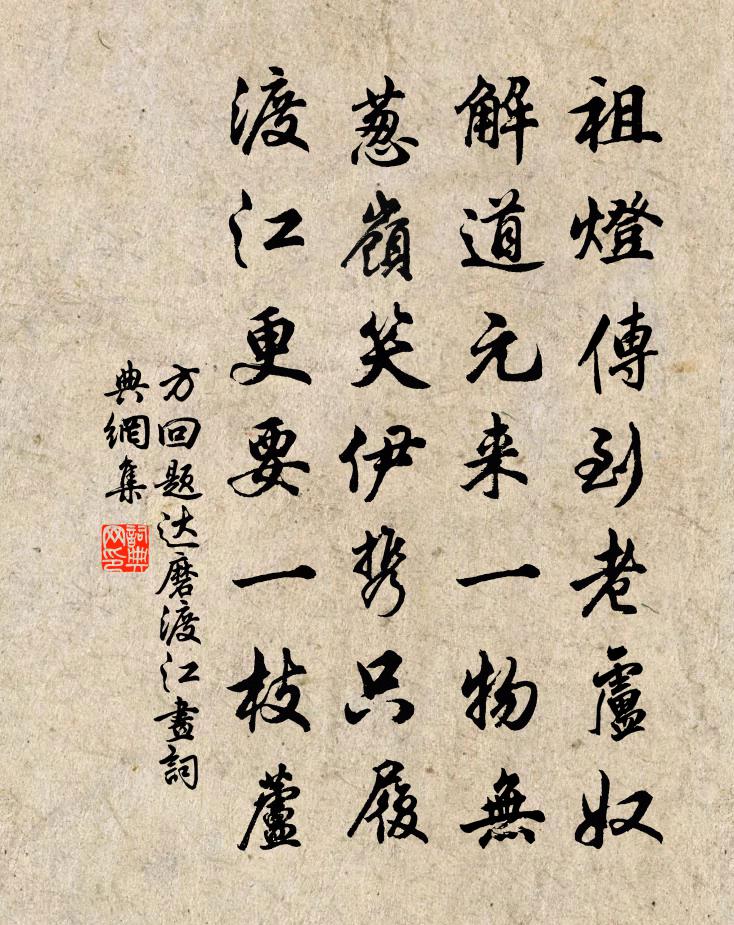 祖燈傳到老盧奴
解道元来一物無
葱嶺笑伊携只履
渡江更要一枝蘆
方回题达磨渡江畫詞
典網集
詞典网印